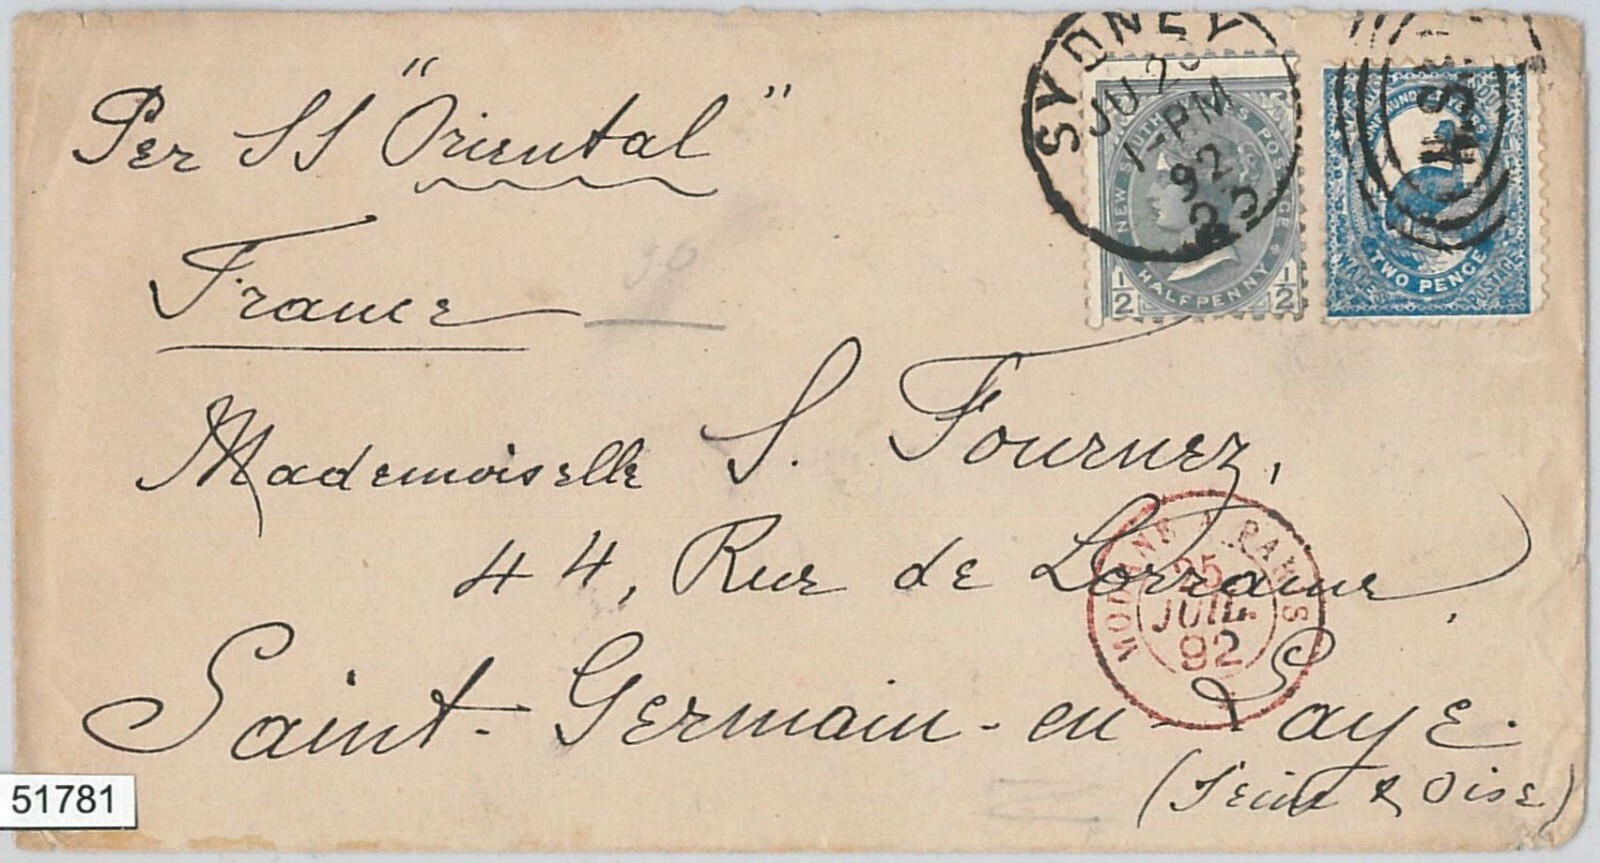 Per SS "Oriental"
France
Mademoiselle S. Fournez,
44, Rue de Lorraine,
Saint-Germain-en-Laye.
(Seine & Oise)
SYDNEY
JU 20
7-PM
92
NEW SOUTH WALES POSTAGE
1/2 HALFPENNY 1/2
N.S.W
TWO PENCE
POSTAGE
MODANE A PARIS
25
JUIL.
92
51781